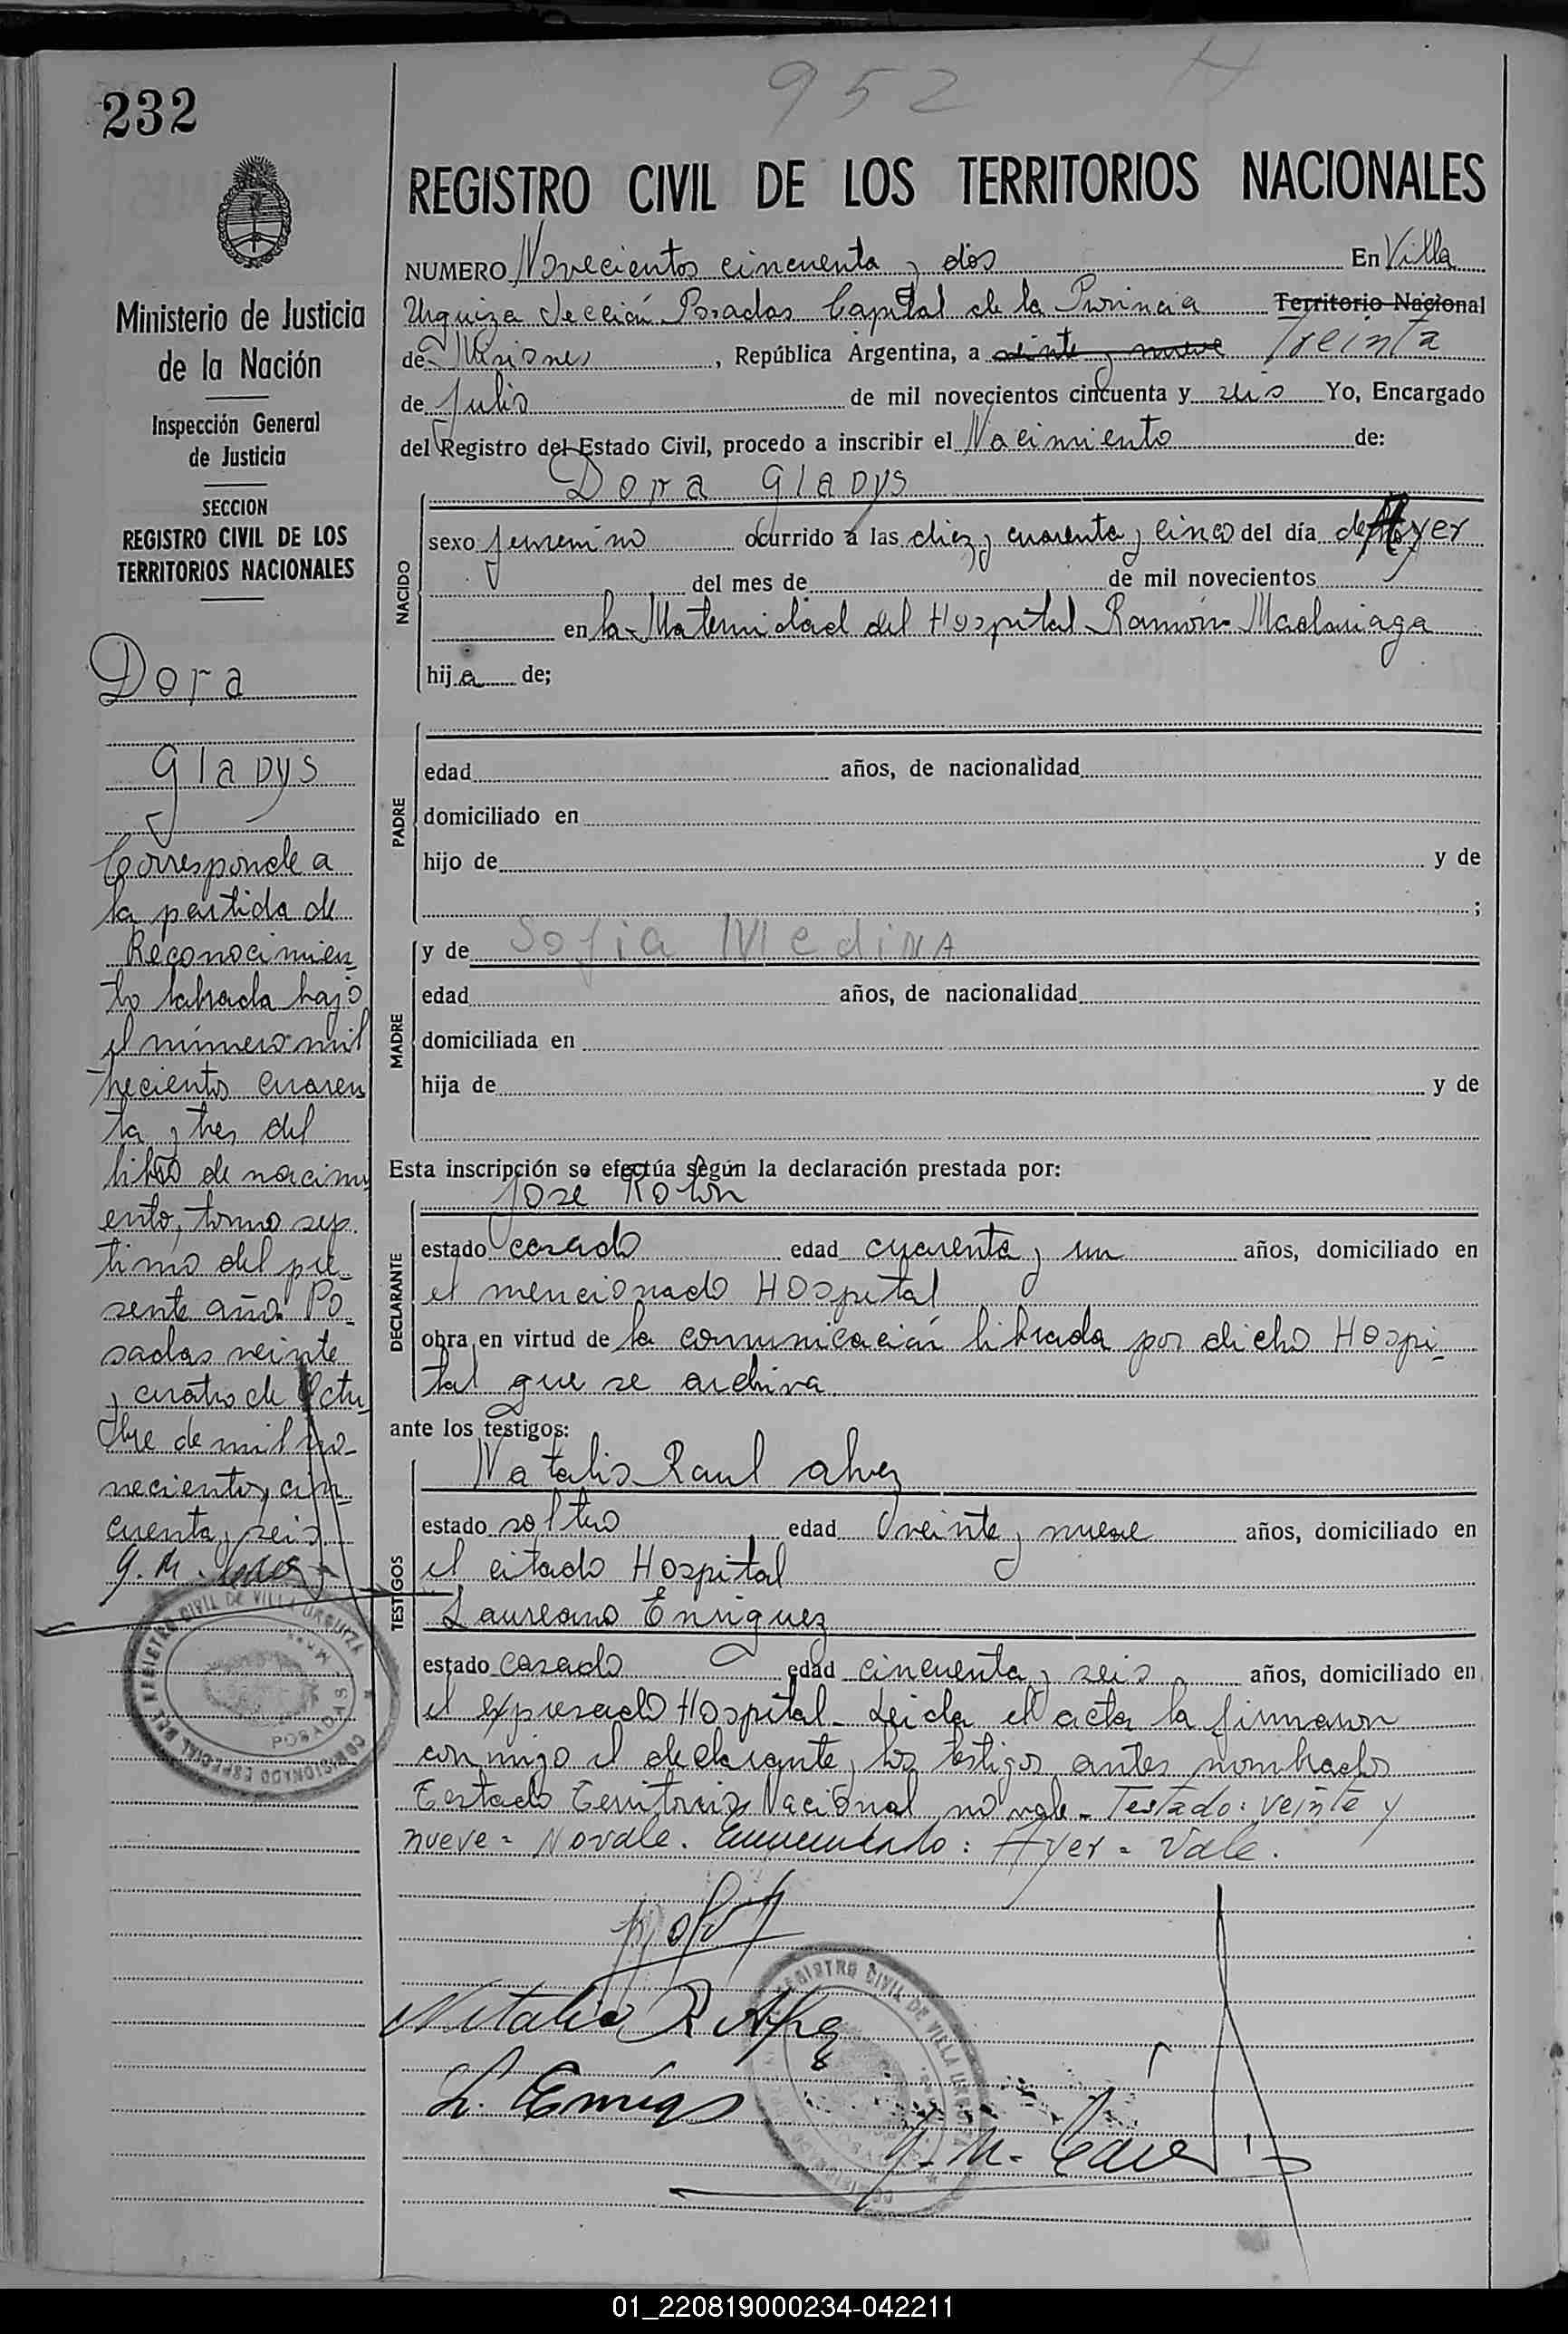 952
232
REGISTRO CIVIL DE LOS TERRITORIOS NACIONALES
NUMERO Novecientos cincuenta y dos En Villa
Urquiza Sección Posadas Capital de la Provincia Territorio Nacional
de Misiones, República Argentina, a veinte y nueve Treinta
de Julio de mil novecientos cincuenta y seis Yo, Encargado
del Registro del Estado Civil, procedo a inscribir el Nacimiento de:
Dora Gladys
NACIDO
sexo femenino ocurrido a las diez y cuarenta y cinco del día de Ayer
del mes de de mil novecientos
en la Maternidad del Hospital Ramón Madariaga
hija de;
PADRE
edad años, de nacionalidad
domiciliado en
hijo de y de
;
MADRE
y de Sofia Medina
edad años, de nacionalidad
domiciliada en
hija de y de
Esta inscripción se efectúa según la declaración prestada por:
Jose Rolon
DECLARANTE
estado casado edad cuarenta y un años, domiciliado en
el mencionado Hospital
obra en virtud de la comunicación librada por dicho Hospi-
tal que se archiva
ante los testigos:
TESTIGOS
Natalio Raul Alvez
estado soltero edad veinte y nueve años, domiciliado en
el citado Hospital
Laureano Enriquez
estado casado edad cincuenta y seis años, domiciliado en
el expresado Hospital - Leida el acta la firmaron
conmigo el declarante y los testigos antes nombrados
Testado Territorio Nacional no vale - Testado: veinte y
nueve = No vale. Enmendado: Ayer = Vale.
Natalio R Alvez
L. Enriqz
REGISTRO CIVIL DE VILLA URQUIZA
Ministerio de Justicia
de la Nación
Inspección General
de Justicia
SECCION
REGISTRO CIVIL DE LOS
TERRITORIOS NACIONALES
Dora
Gladys
Corresponde a
la partida de
Reconocimien-
to labrada bajo
el número mil
trecientos cuaren
ta y tres del
libro de nacimi
ento, tomo sep
timo del pre-
sente año. Po-
sadas veinte
y cuatro de Octu-
bre de mil no-
vecientos cin-
cuenta y seis
COMISIONADO ESPECIAL DEL REGISTRO CIVIL DE VILLA URQUIZA
POSADAS
01_220819000234-042211